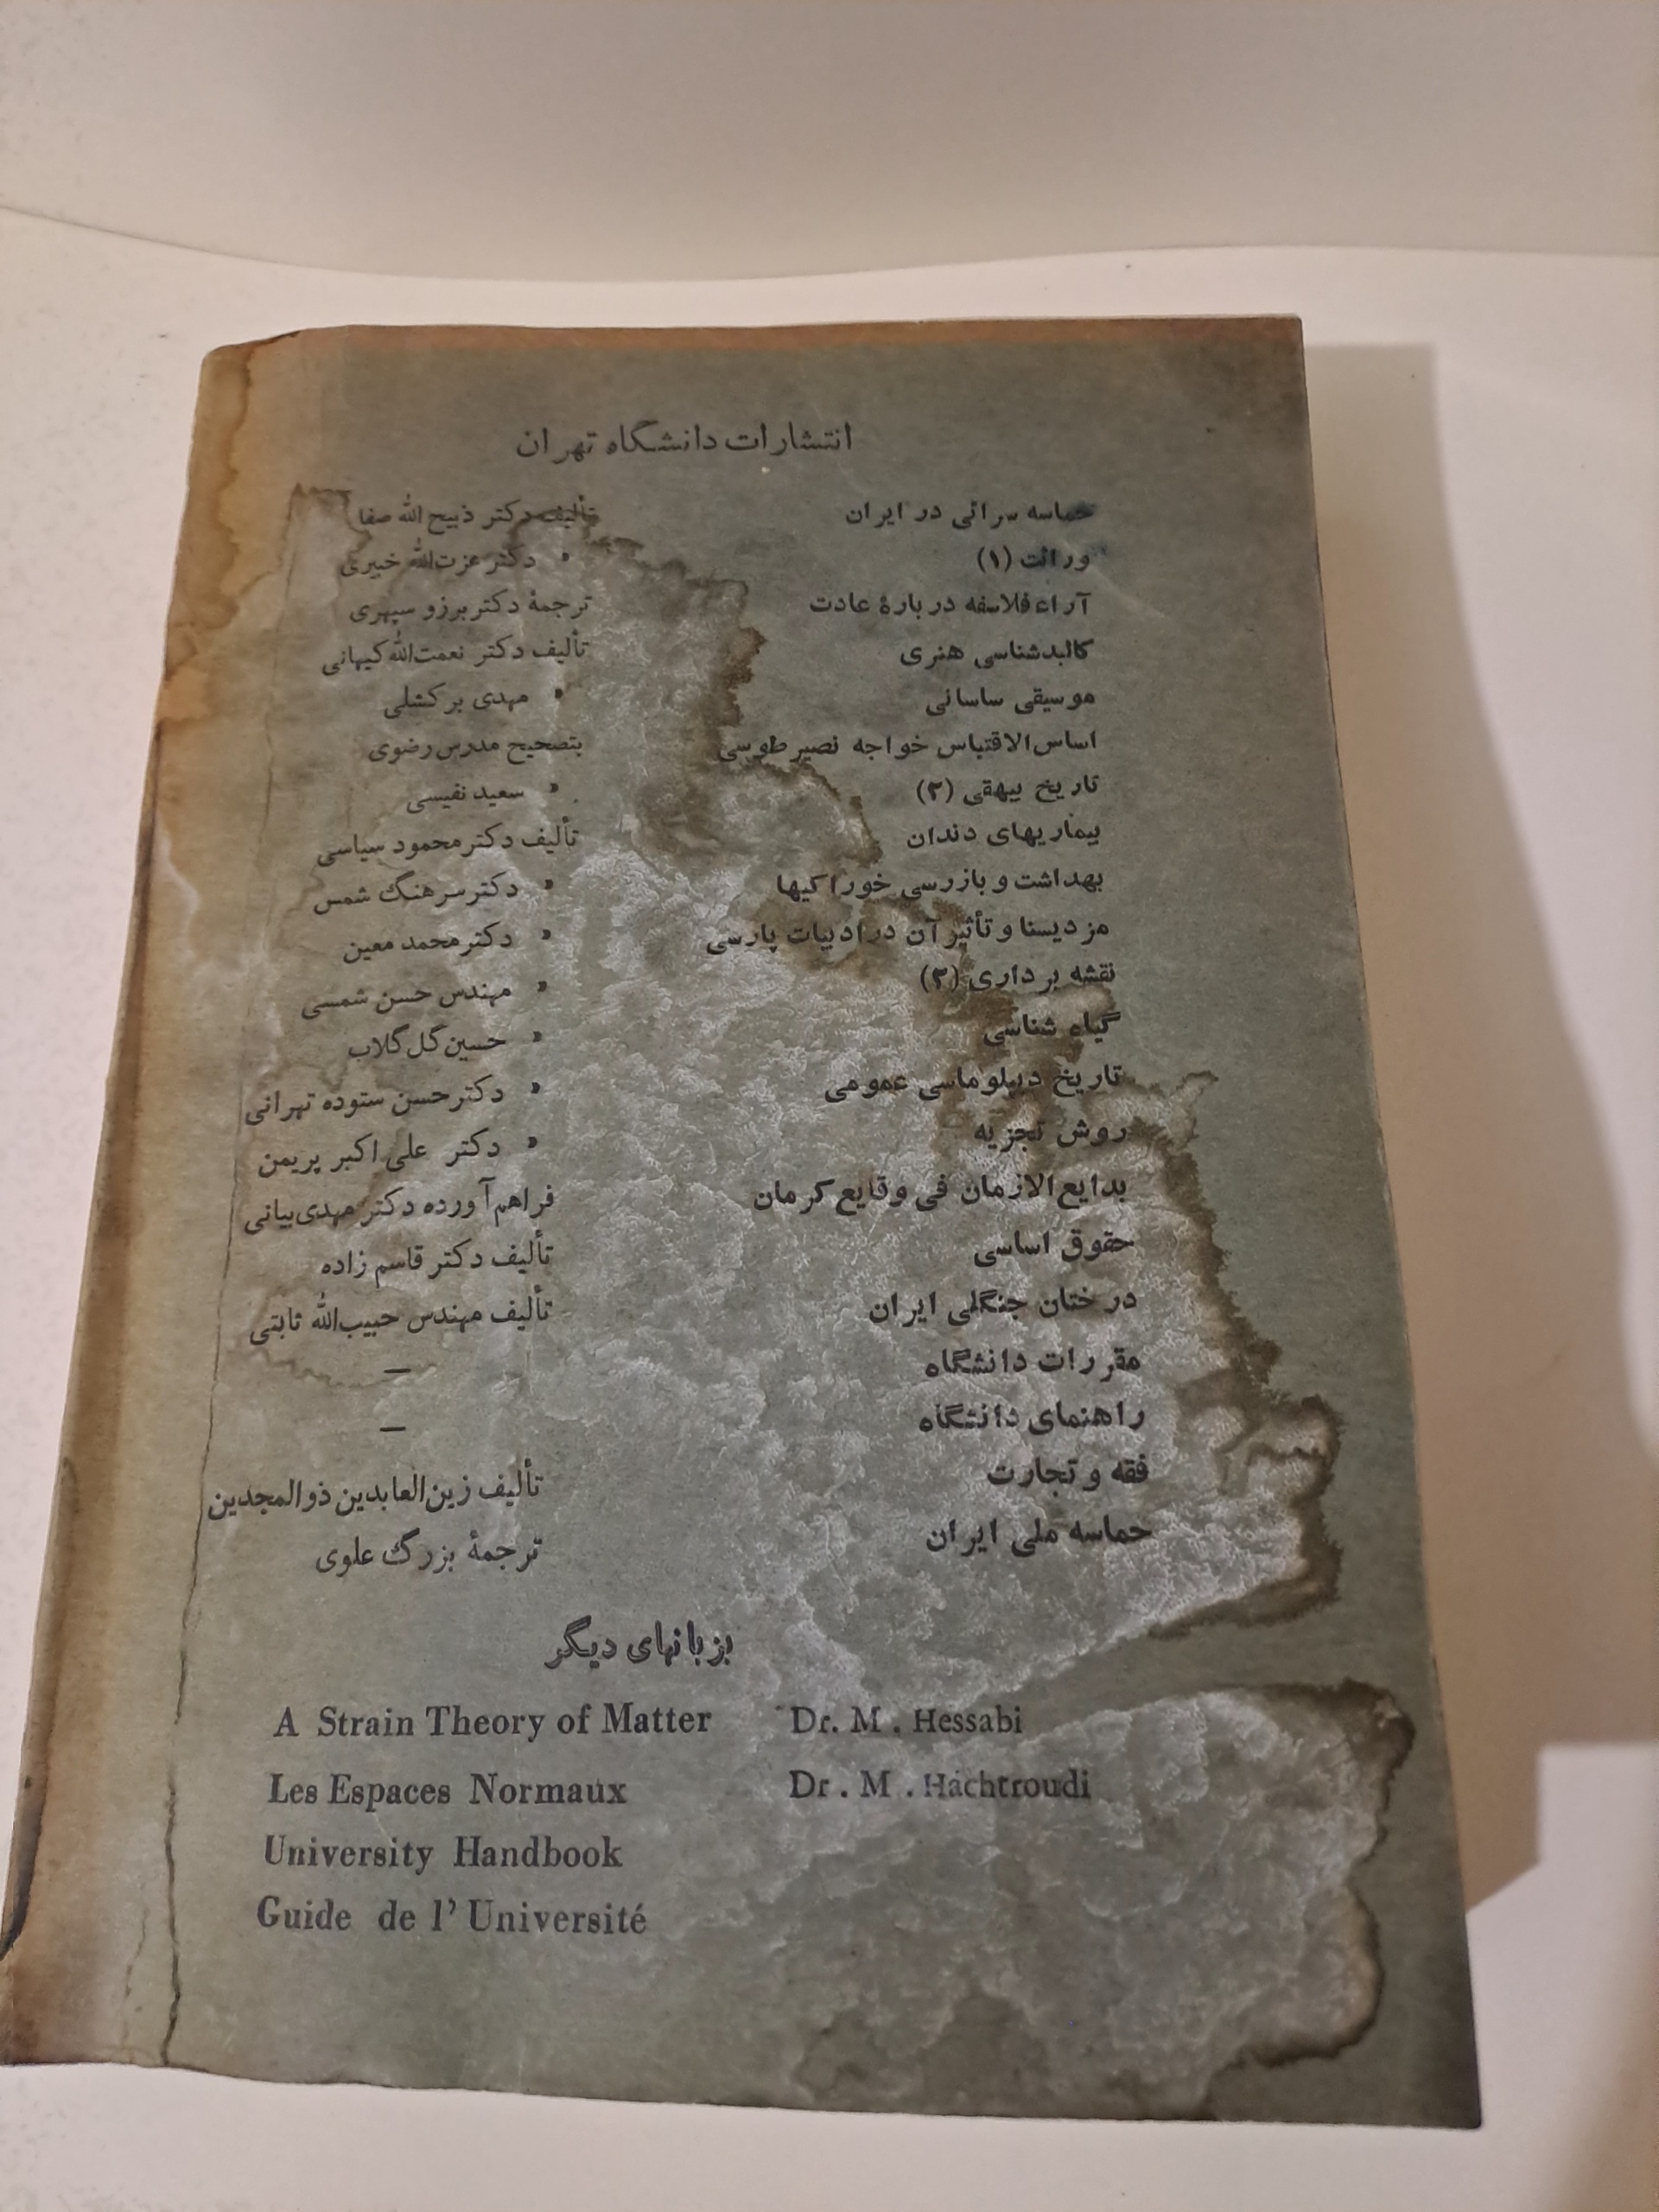 انتشارات دانشگاه تهران
حماسه سرائی در ایران تألیف دکتر ذبیح الله صفا
وراثت (۱) » دکتر عزت‌الله خبیری
آراء فلاسفه در بارهٔ عادت ترجمهٔ دکتر برزو سپهری
کالبدشناسی هنری تألیف دکتر نعمت‌الله کیهانی
موسیقی ساسانی » مهدی برکشلی
اساس‌الاقتباس خواجه نصیر طوسی بتصحیح مدرس رضوی
تاریخ بیهقی (۲) » سعید نفیسی
بیماریهای دندان تألیف دکتر محمود سیاسی
بهداشت و بازرسی خوراکیها » دکتر سرهنگ شمس
مزدیسنا و تأثیر آن در ادبیات پارسی » دکتر محمد معین
نقشه برداری (۲) » مهندس حسن شمسی
گیاه شناسی » حسین گل گلاب
تاریخ دیپلوماسی عمومی » دکتر حسن ستوده تهرانی
روش تجزیه » دکتر علی اکبر پریمن
بدایع‌الازمان فی وقایع کرمان فراهم آورده دکتر مهدی بیانی
حقوق اساسی تألیف دکتر قاسم زاده
درختان جنگلی ایران تألیف مهندس حبیب‌الله ثابتی
مقررات دانشگاه —
راهنمای دانشگاه —
فقه و تجارت تألیف زین‌العابدین ذوالمجدین
حماسه ملی ایران ترجمهٔ بزرگ علوی
بزبانهای دیگر
A Strain Theory of Matter Dr. M. Hessabi
Les Espaces Normaux Dr. M. Hachtroudi
University Handbook
Guide de l'Université